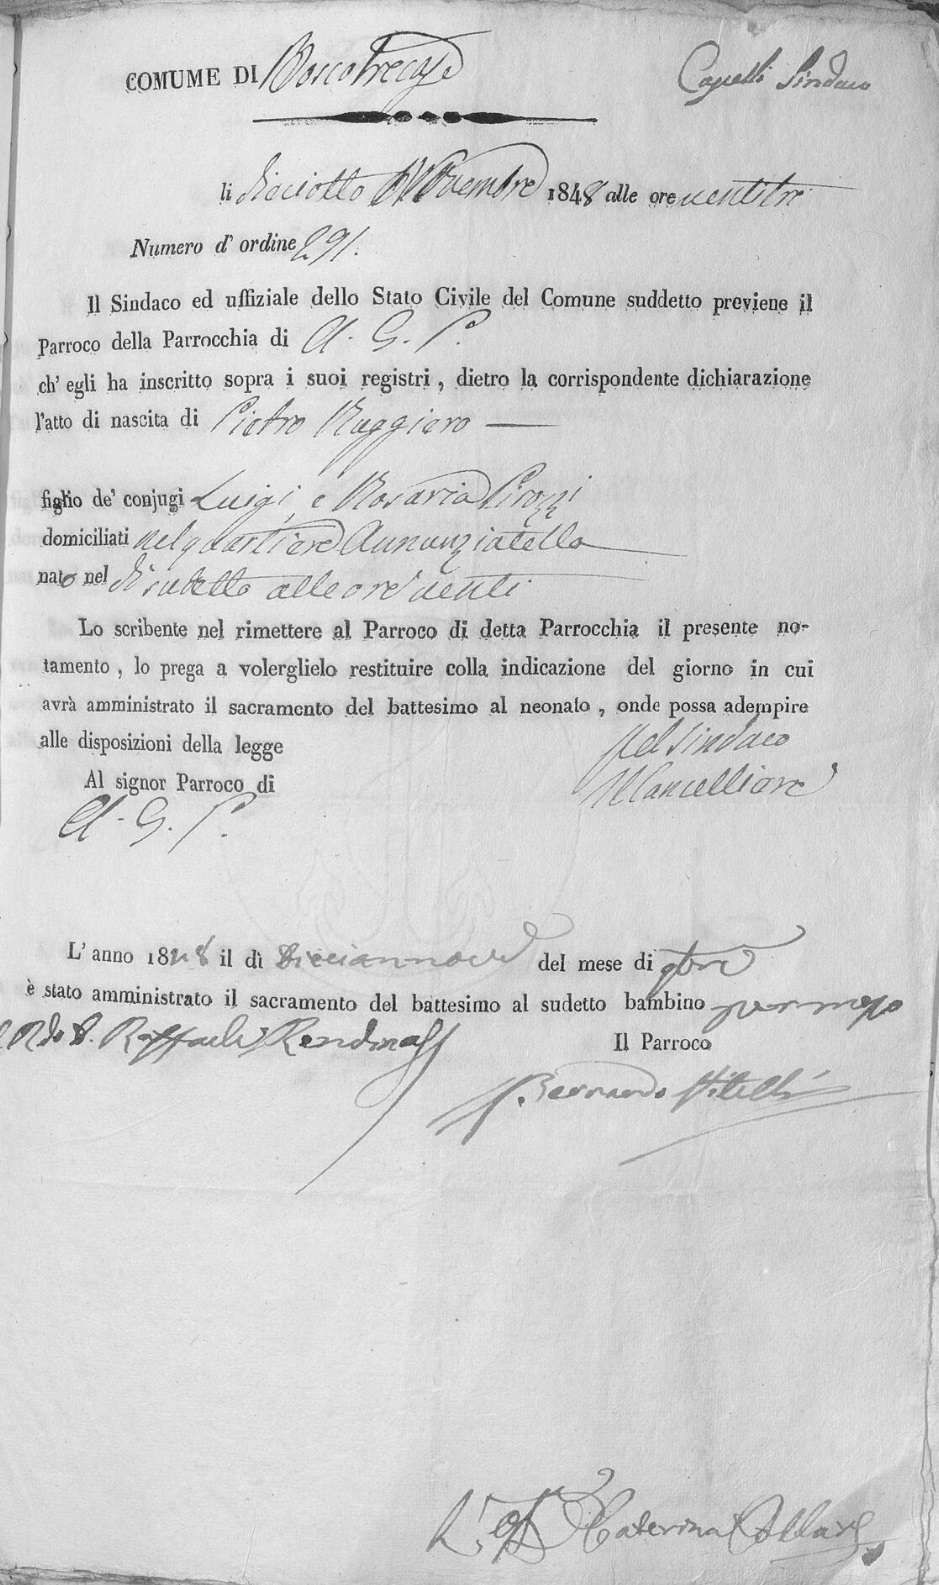 COMUME DI Boscotrecase
Capelli Sindaco
li dieciotto Novembre 1848 alle ore ventitre
Numero d' ordine 291.
Il Sindaco ed uffiziale dello Stato Civile del Comune suddetto previene il
Parroco della Parrocchia di A. G. P.
ch' egli ha inscritto sopra i suoi registri, dietro la corrispondente dichiarazione
l'atto di nascita di Pietro Ruggiero
figlio de' conjugi Luigi, e Rosaria Pirozzi
domiciliati nel quartiere Annunziatella
nato nel dì sudetto alle ore venti
Lo scribente nel rimettere al Parroco di detta Parrocchia il presente no-
tamento, lo prega a volerglielo restituire colla indicazione del giorno in cui
avrà amministrato il sacramento del battesimo al neonato, onde possa adempire
alle disposizioni della legge
Pel Sindaco
Al signor Parroco di
Il Cancelliere
A. G. P.
L' anno 1848 il dì Dieciannove del mese di 9bre
è stato amministrato il sacramento del battesimo al sudetto bambino
Rdo D. Raffaele Rendina
Il Parroco
Bernardo Vitelli
Caterina